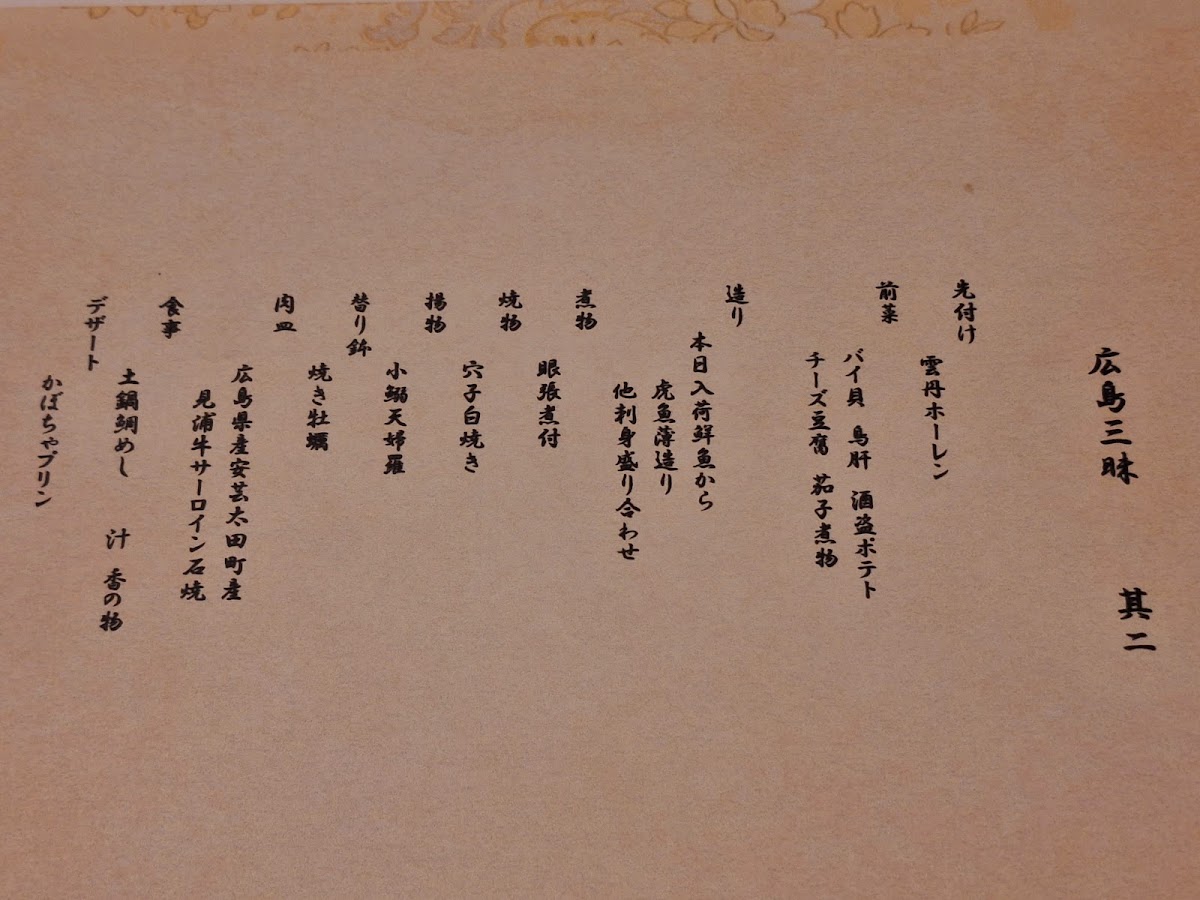 広島三昧　其二
先付け
雲丹ホーレン
前菜
バイ貝　鳥肝　酒盗ポテト
チーズ豆腐　茄子煮物
造り
本日入荷鮮魚から
虎魚薄造り
他刺身盛り合わせ
煮物
眼張煮付
焼物
穴子白焼き
揚物
小鰯天婦羅
替り鉢
焼き牡蠣
肉皿
広島県産安芸太田町産
見浦牛サーロイン石焼
食事
土鍋鯛めし　汁　香の物
デザート
かぼちゃプリン